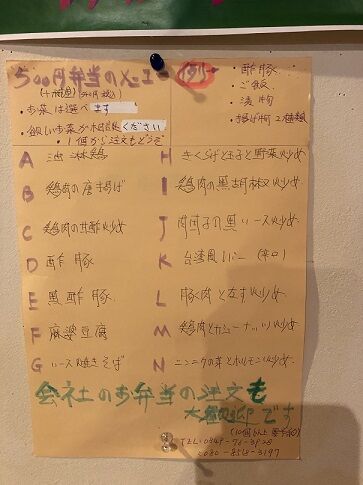 500円弁当のメニュー
例
・酢豚
・ご飯
・漬物
・揚げ物2種類
・お菜は選べます
ください
・1個から注文もどうぞ
A 油淋鶏
B 鶏肉の唐揚げ
C 鶏肉の甘酢炒め
D 酢豚
E 黒酢豚
F 麻婆豆腐
G ソース焼きそば
H きくらげと玉子と野菜炒め
I 鶏肉の黒胡椒炒め
J 肉団子の黒ソース炒め
K 台湾風 (辛口)
L 豚肉となす炒め
M 鶏肉とカシューナッツ炒め
N ニンニクの芽とホルモン炒め
会社のお弁当の注文も
大歓迎です
(10個以上